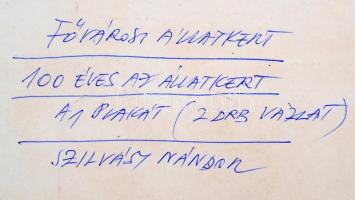 FŐVÁROSI ÁLLATKERT
100 ÉVES AZ ÁLLATKERT
A1 PLAKÁT (2 DRB VÁZLAT)
SZILVÁSY NÁNDOR